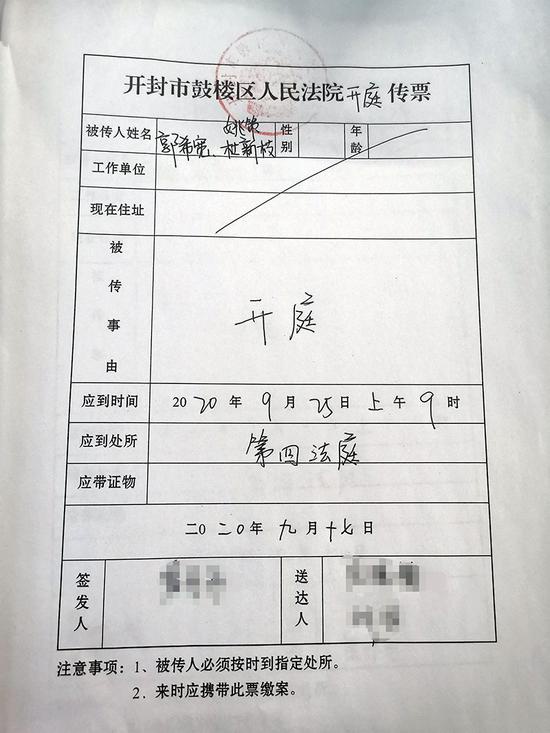 开封市鼓楼区人民法院开庭传票
姚策
被传人姓名 郭希宽、杜新枝 性别 年龄
工作单位
现在住址
被传事由 开庭
应到时间 2020年9月25日上午9时
应到处所 第四法庭
应带证物
二〇二〇年九月十七日
签发人 送达人
注意事项：1、被传人必须按时到指定处所。
2．来时应携带此票缴案。